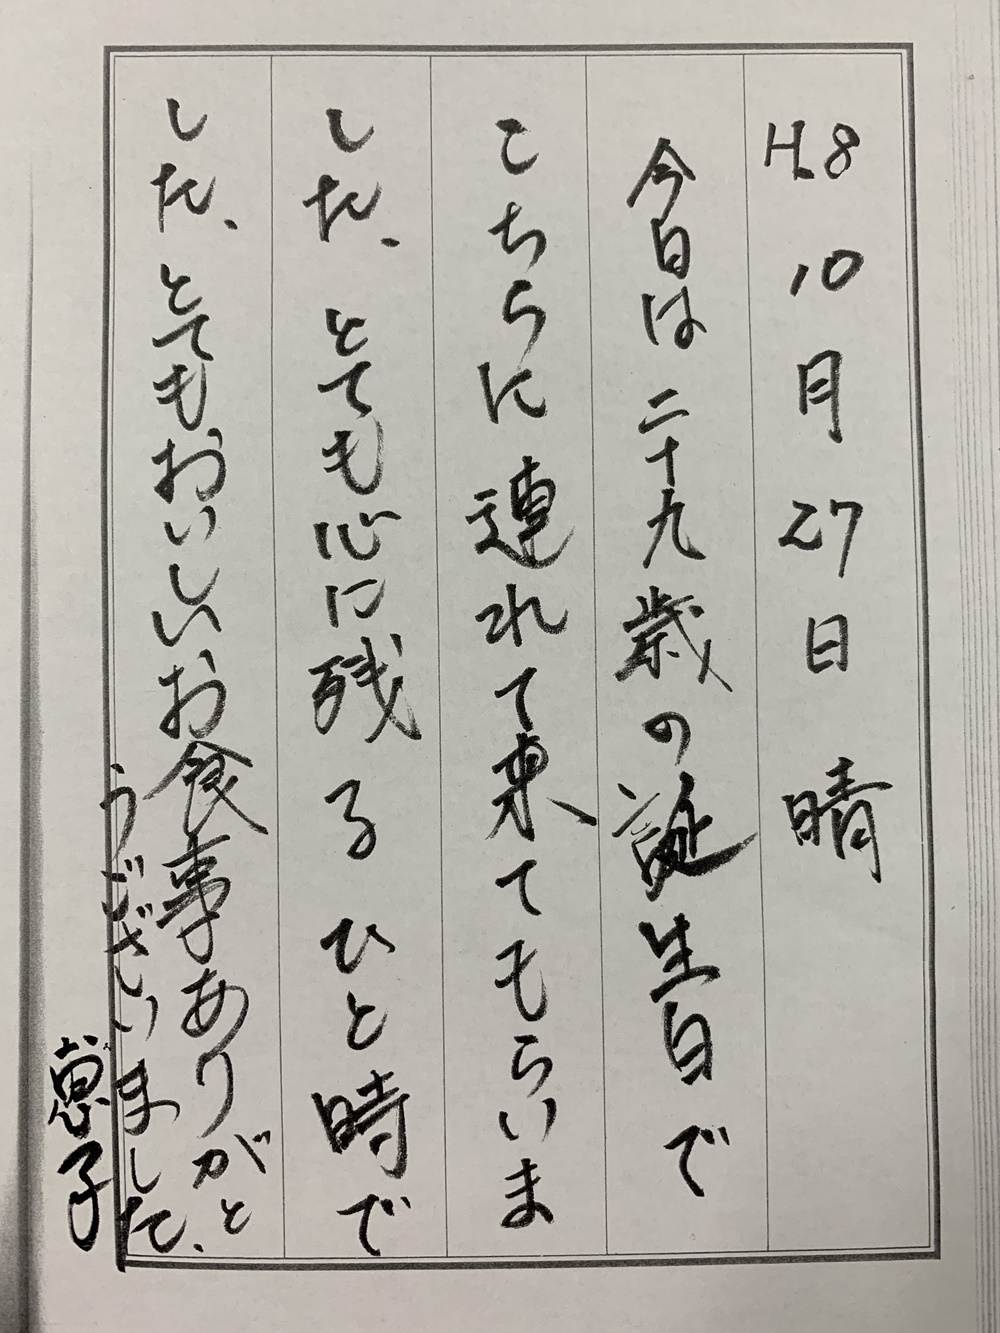 H.8 10月27日 晴
今日は二十九歳の誕生日で
こちらに連れて来てもらいま
した、とても心に残るひと時で
した、とてもおいしいお食事ありがと
うございました、
恵子